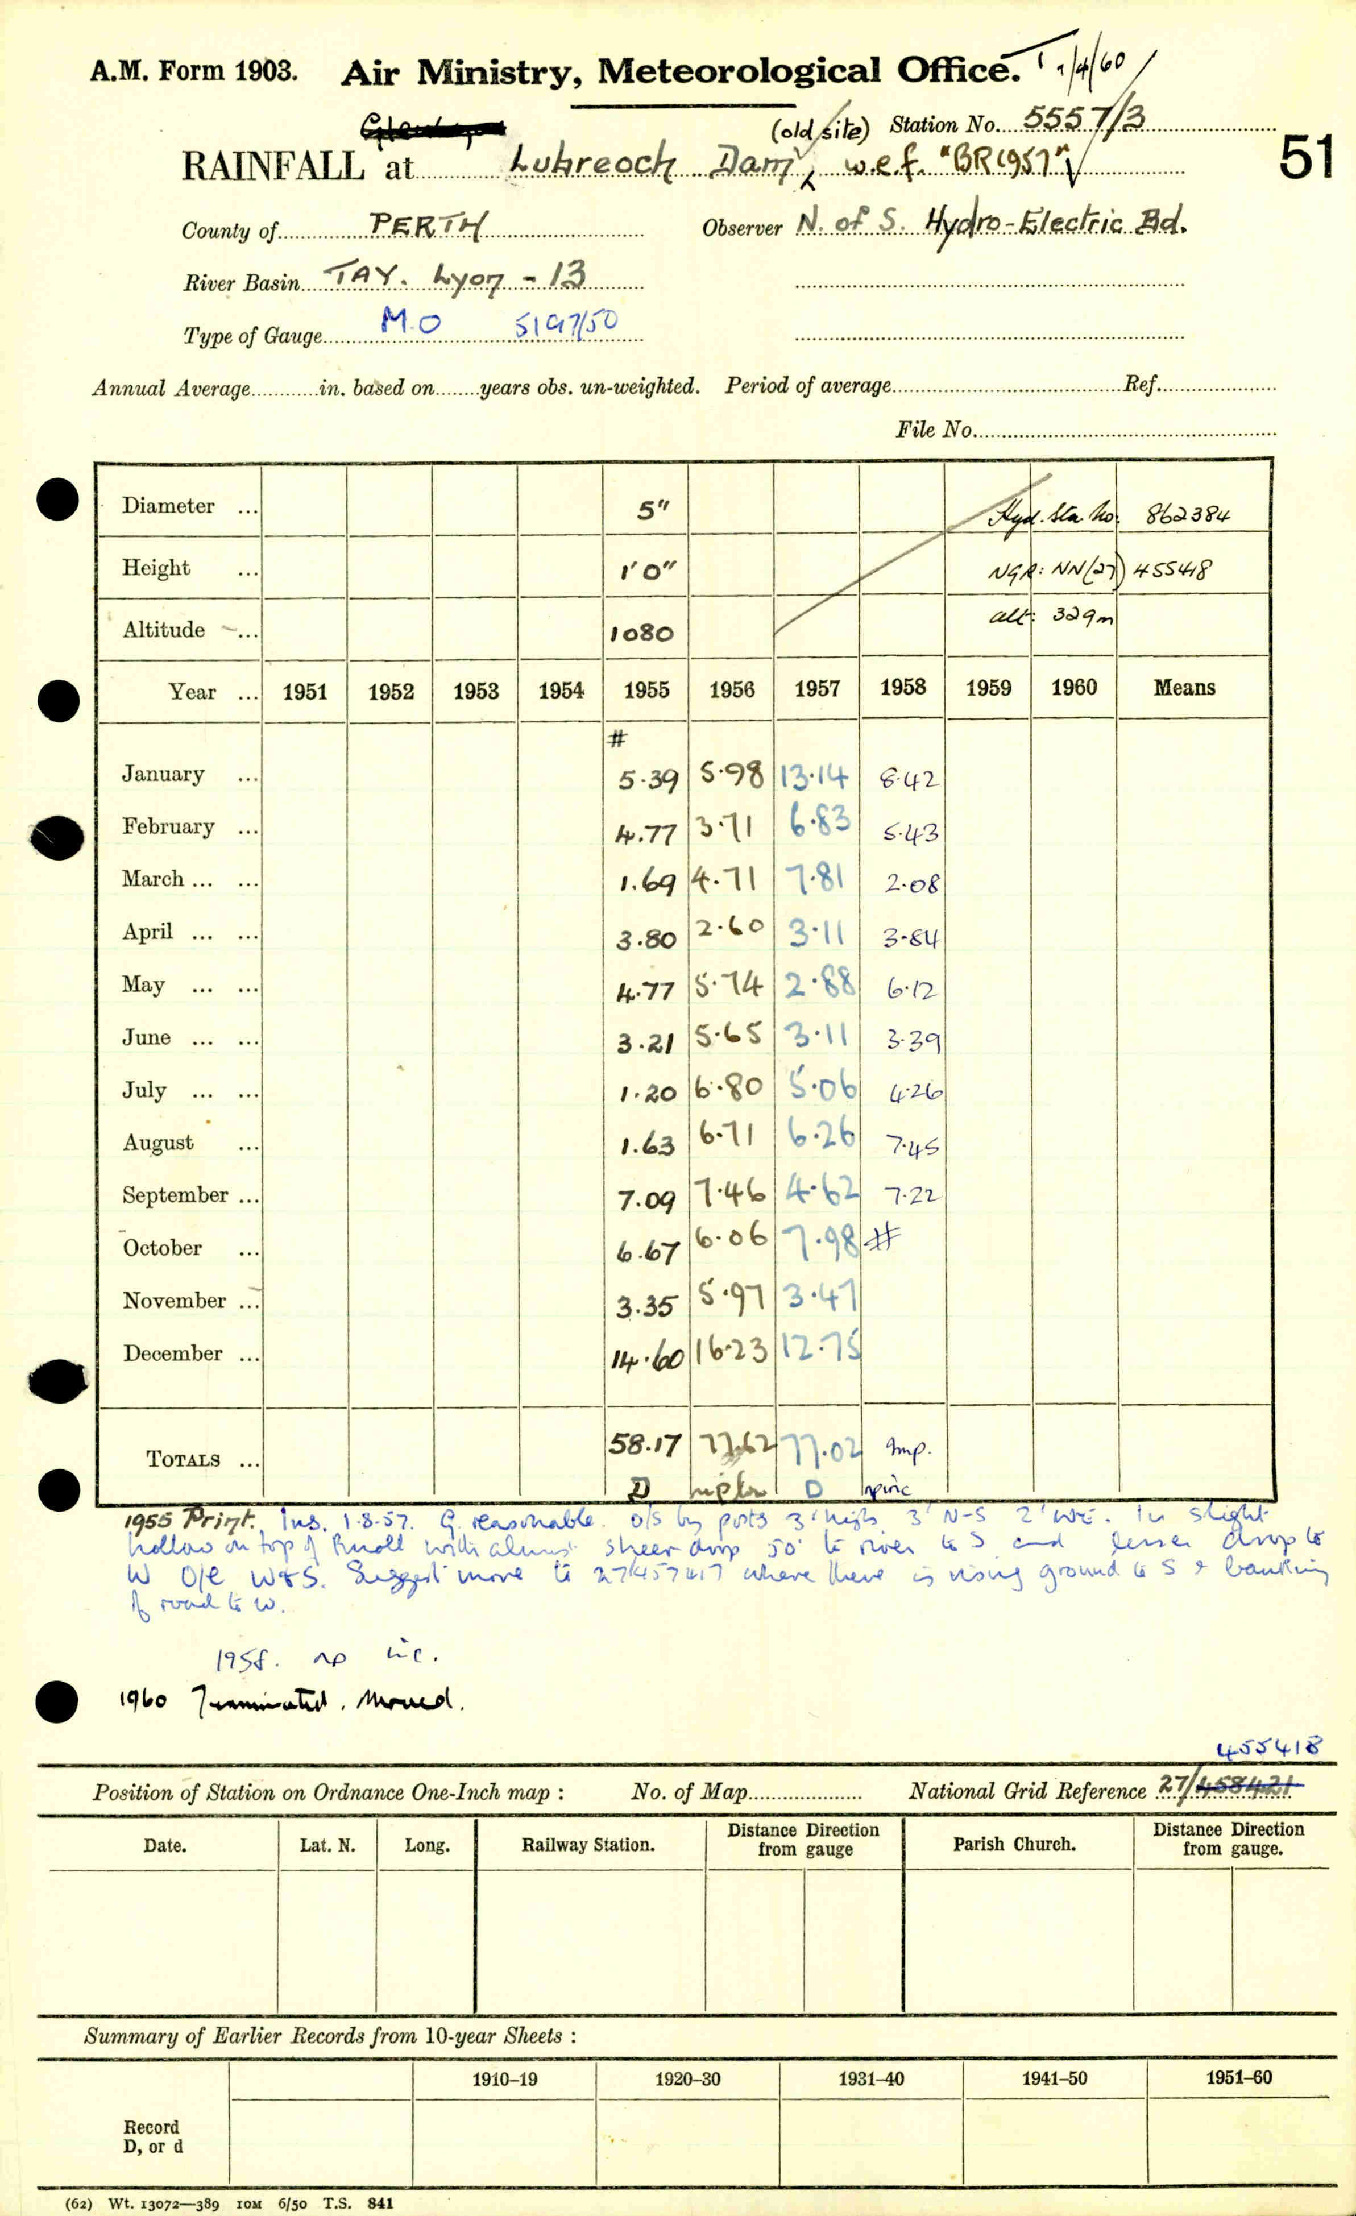 A.M. Form 1903. Air Ministry, Meteorological Office. T 1/4/60
(old site) Station No. 5557/3
RAINFALL at Lubreoch Dam, w.e.f. "BR1957" 51
County of PERTH Observer N. of S. Hydro-Electric Bd.
River Basin TAY. Lyon - 13
Type of Gauge M.O 5197/50
Annual Average in. based on years obs. un-weighted. Period of average Ref.
File No.
Diameter ... 5" Hyd. Sta. No: 862384
Height ... 1'0" NGR: NN(27) 455418
Altitude ... 1080 alt: 329m
Year ... 1951 1952 1953 1954 1955 1956 1957 1958 1959 1960 Means
#
January ... 5.39 5.98 13.14 8.42
February ... 4.77 3.71 6.83 5.43
March ... ... 1.69 4.71 7.81 2.08
April ... ... 3.80 2.60 3.11 3.84
May ... ... 4.77 5.74 2.88 6.12
June ... ... 3.21 5.65 3.11 3.39
July ... ... 1.20 6.80 5.06 4.26
August ... 1.63 6.71 6.26 7.45
September ... 7.09 7.46 4.62 7.22
October ... 6.67 6.06 7.98 #
November ... 3.35 5.97 3.47
December ... 14.60 16.23 12.75
TOTALS ... 58.17 77.62 77.02 Imp.
D D npinc
1955 Print. Ins. 1.8.57. G. reasonable. o/s by posts 3' high 3' N-S 2' WE. In slight
hollow on top of knoll with almost sheer drop 50' to river to S and lesser drop to
W O/E W & S. Suggest move to 27/457417 where there is rising ground to S & banking
of road to W.
1958. np inc.
1960 Terminated. Moved.
455418
Position of Station on Ordnance One-Inch map : No. of Map National Grid Reference 27/458421
Date. Lat. N. Long. Railway Station. Distance from Direction gauge Parish Church. Distance from Direction gauge.
Summary of Earlier Records from 10-year Sheets :
1910–19 1920–30 1931–40 1941–50 1951–60
Record
D, or d
(62) Wt. 13072—389 10M 6/50 T.S. 841